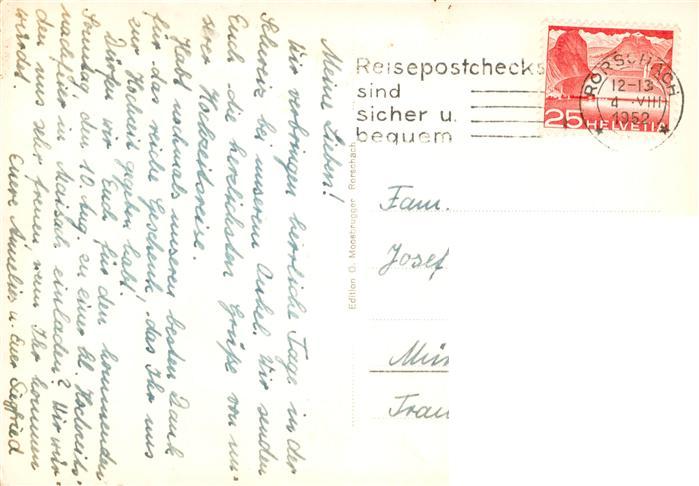 Meine Lieben!
Wir verbringen herrliche Tage in der
Schweiz bei unserem Onkel. Wir senden
Euch die herzlichsten Grüße von un-
serer Hochzeitsreise.
Habt nochmals unseren besten Dank
für das reiche Geschenk, das Ihr uns
zur Hochzeit gegeben habt.
Dürfen wir Euch für den kommenden
Sonntag, den 10. Aug. zu einer kl. Hochzeits-
nachfeier in Maisach einladen? Wir wür-
den uns sehr freuen, wenn Ihr kommen
würdet.
Eure Annelies u. Euer Sigfried
Edition O. Moosbrugger Rorschach
Reisepostchecks
sind
sicher u.
bequem
RORSCHACH
12-13
4. VIII
1952
25 HELVETIA
Fam.
Josef
Mün
Frau